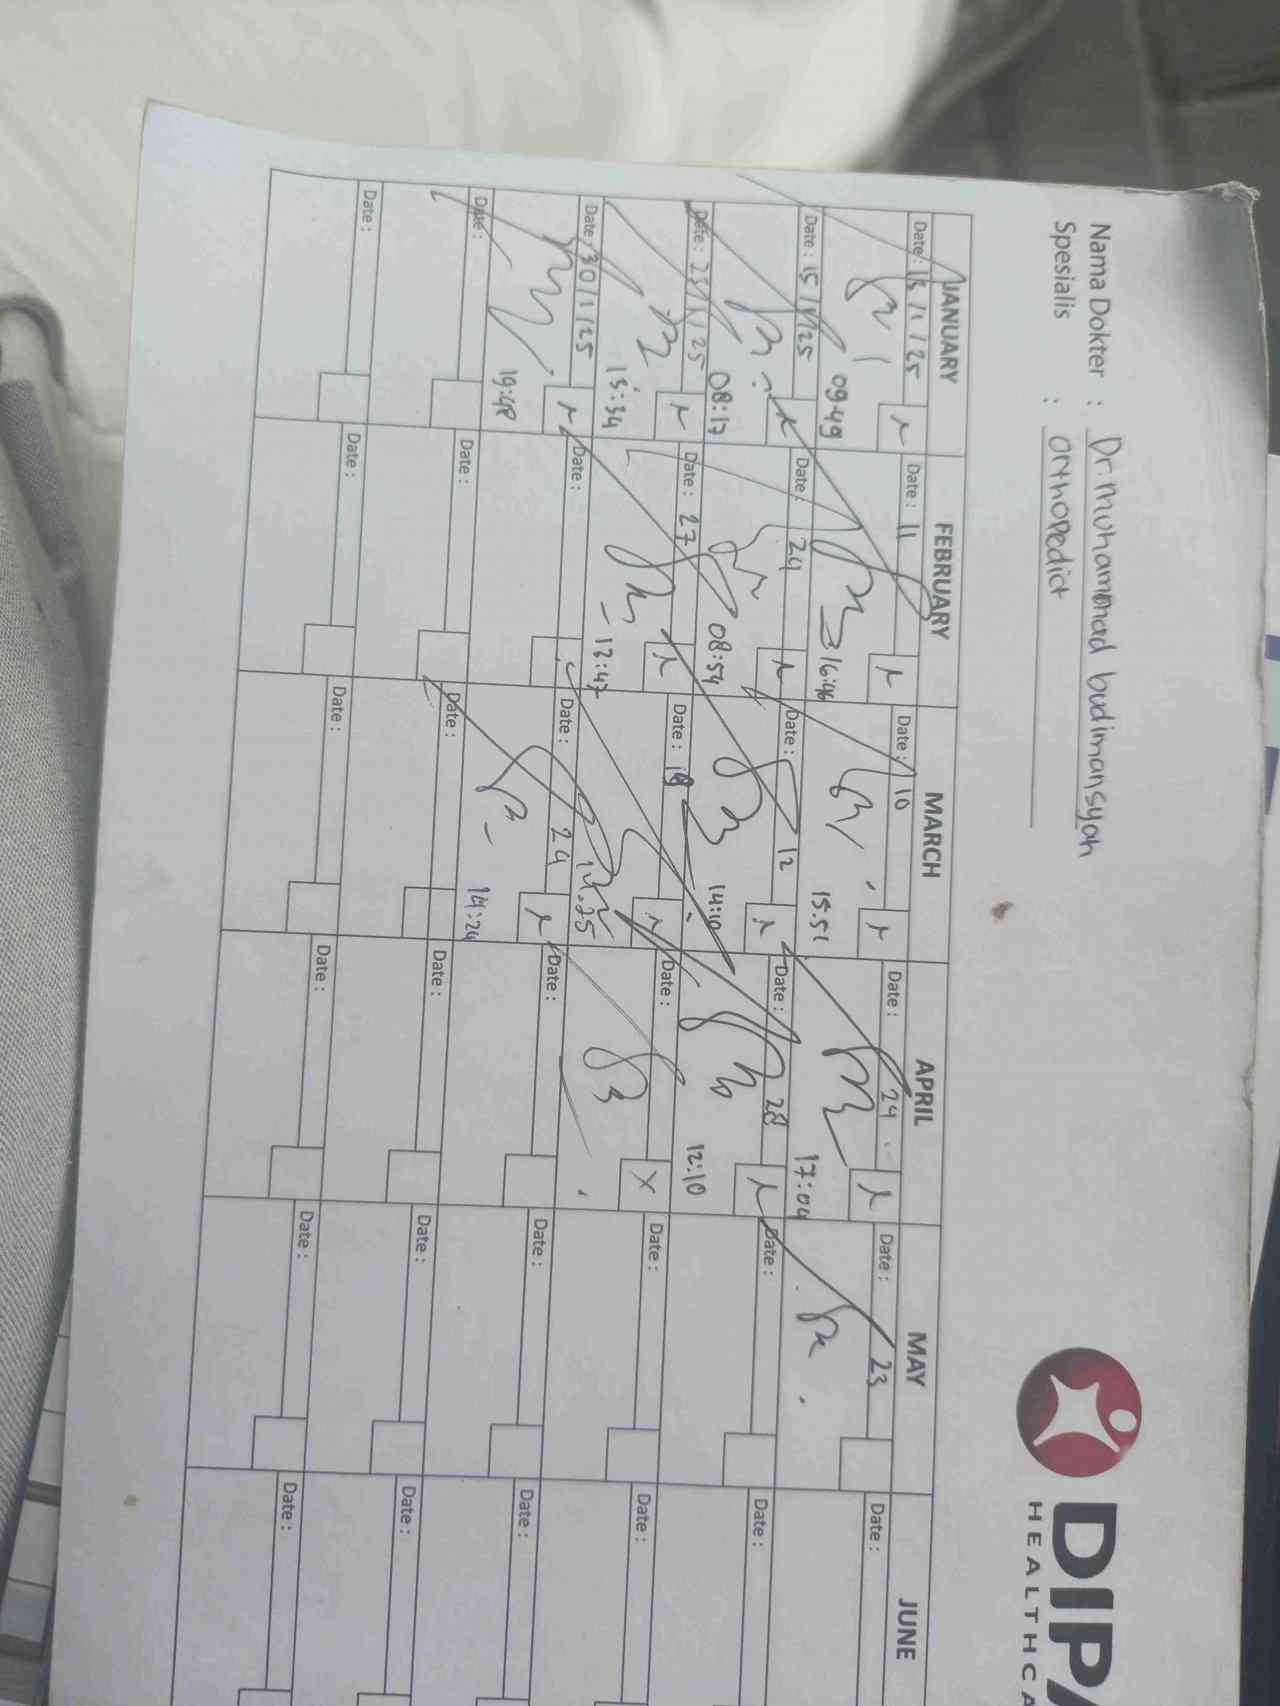 Nama Dokter : Dr. Muhammad budimansyah
Spesialis : orthopedict
DIPA
HEALTHCA
JANUARY FEBRUARY MARCH APRIL MAY JUNE
Date: 13/1/25 Date: 11 Date: 10 Date: 24 Date: 23 Date:
09:49 16:46 15.51 17:04
Date: 15/1/25 Date: 24 Date: 12 Date: 28 Date: Date:
08:17 08:54 14:10 12:10
Date: 23/1/25 Date: 27 Date: 18 Date: X Date: Date:
13:34 12:47
Date: 30/1/25 Date: Date: 24 Date: Date: Date:
19:48 14:24
Date: Date: Date: Date: Date: Date:
Date: Date: Date: Date: Date: Date: